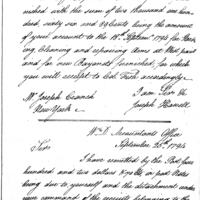 nished with the sum of two thousand one hun-
dred, sixty six and 29 Cents being the amount
of your account to the 18th Septemr 1794 for Stock-
ing, Cleaning and repairing Arms at West point
and for new Bayonets furnished, for which
you will receipt to Col. Fish accordingly.
I am Sir &c
Mr. Joseph Crouch
New York
Joseph Howell
W. D. Accountants Office
September 20th 1794
Sir
I have remitted by the Post four
hundred and two dollars & 70/100 in part Notes
being due to yourself and the detachment under
your command of the recruits belonging to the